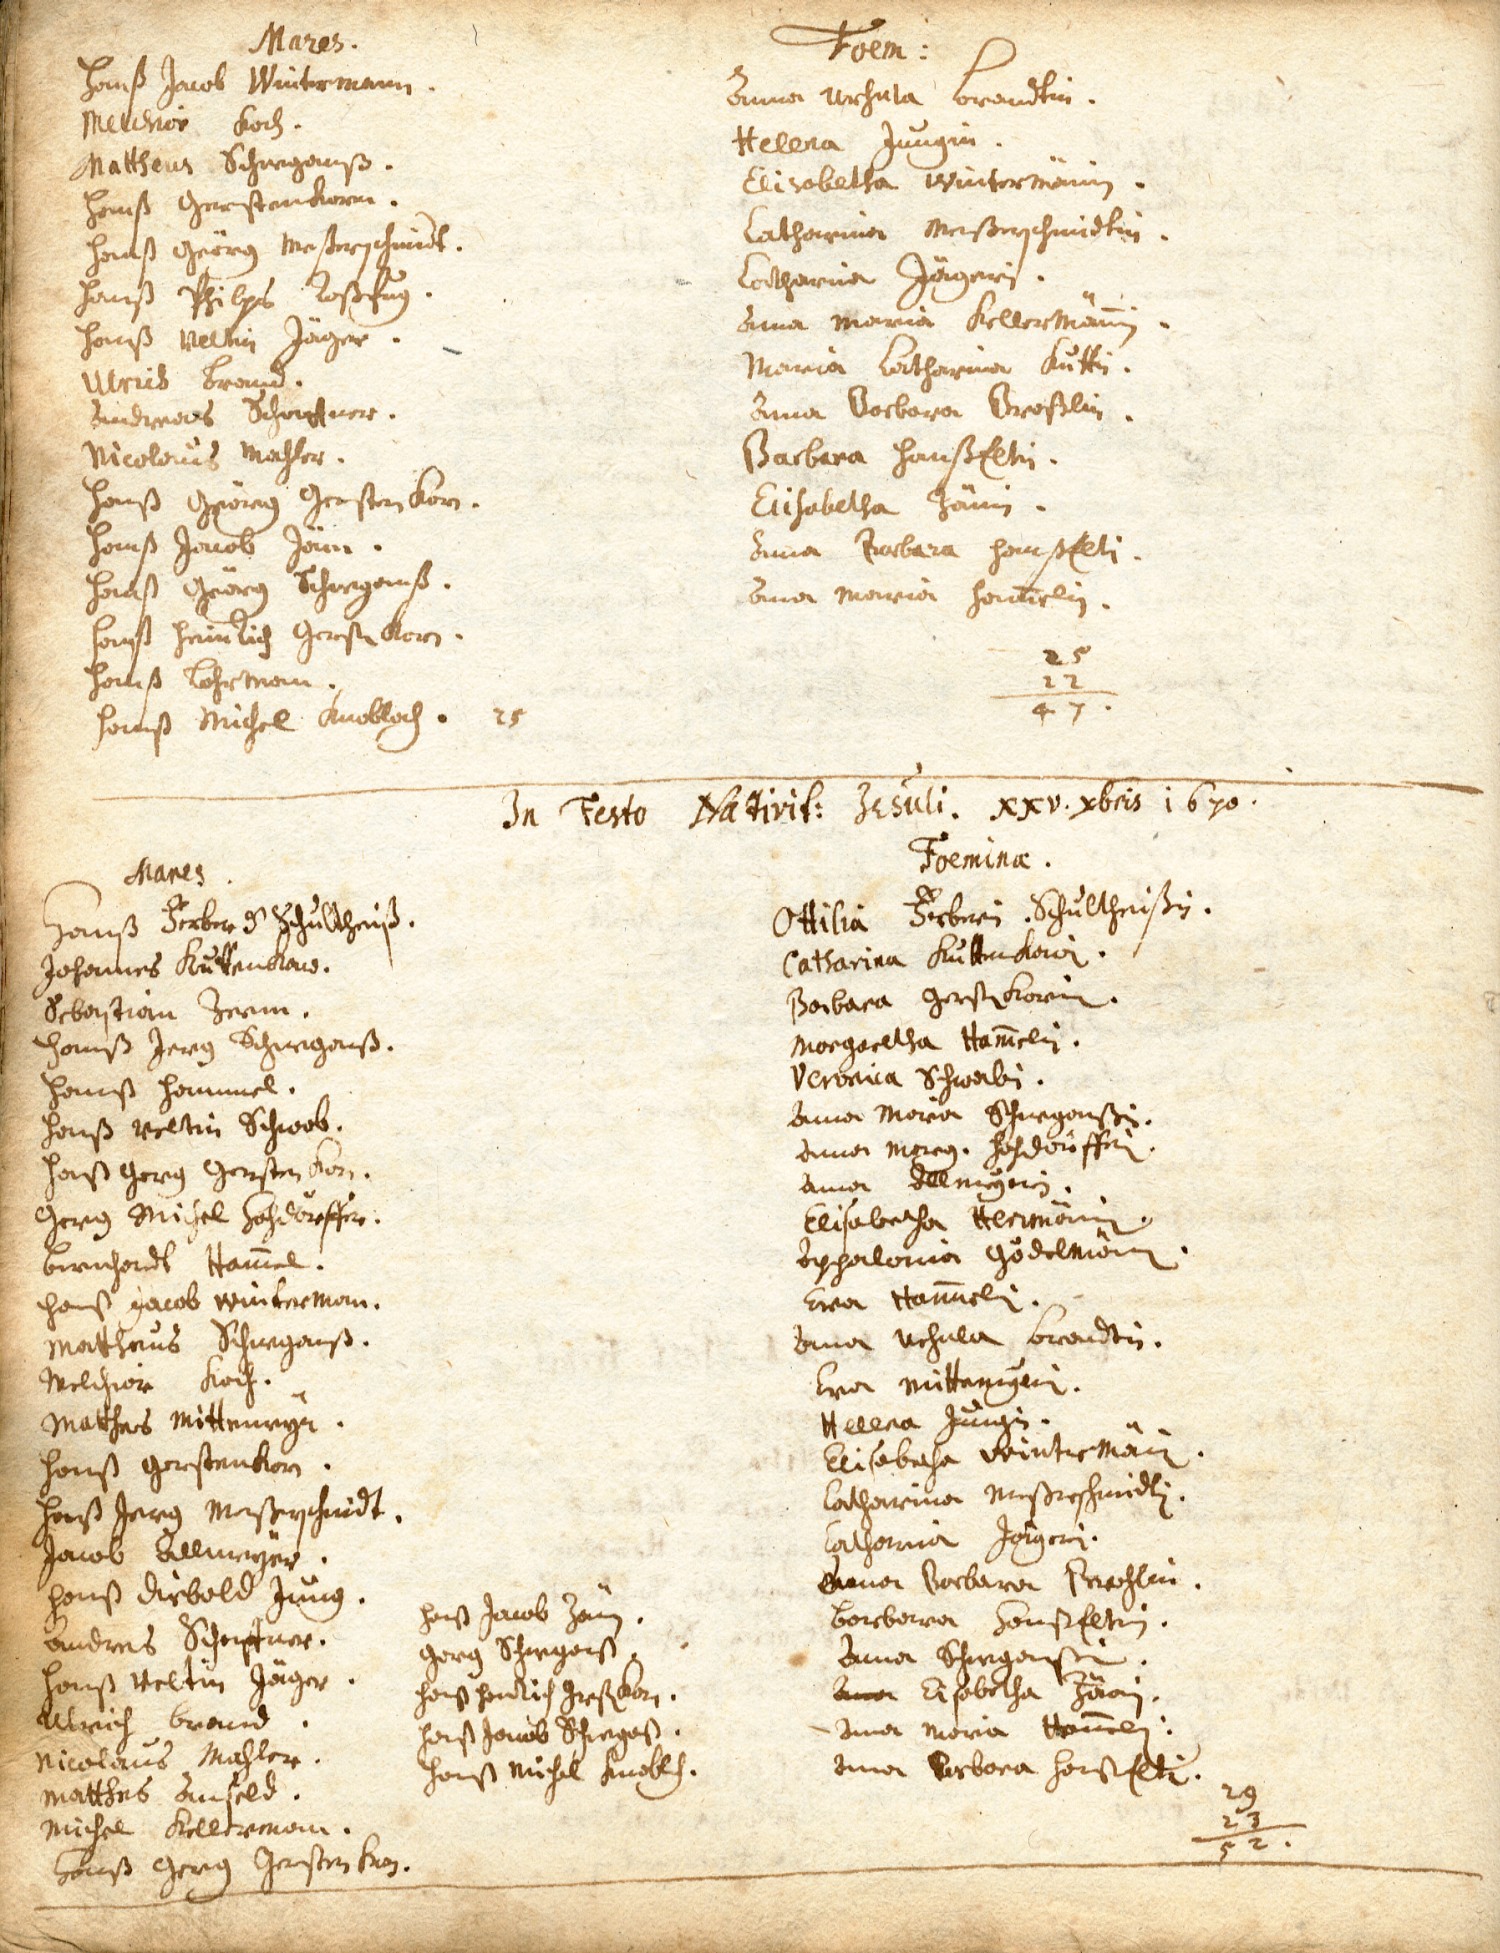 Mares.
Hanß Jacob Wintermann.
Melchior Koch.
Mattheus Schregauß.
Hanß Gerstenkorn.
Hanß Geörg Meßerschmidt.
Hanß Philps
Hanß Veltin Jäger.
Ulrich Brand.
Andreas
Nicolaus Mahler.
Hanß Geörg Gerstenkorn.
Hanß Jacob Jäin.
Hanß Geörg Schregauß.
Hanß Heinrich Gerstenkorn.
Hanß Lohrman.
Hanß Michel Knobloch. 25
Foem:
Anna Ursula Brandtin.
Helena Jungin.
Elisabetha Wintermänin.
Catharina Meßerschmidtin.
Catharina Jägerin.
Anna Maria Kellermäñin.
Maria Catharina
Anna Barbara
Barbara
Elisabetha Zänin.
Anna Barbara
Anna Maria Ham̅elin.
25
22
47.
In Festo Nativit: Jesuli. XXV. Xbris 1670.
Mares.
Hanß Ferber d Schultheiß.
Johannes Kuttenkorn.
Sebastian
Hanß Jerg Schregauß.
Hanß Hammel.
Hanß Veltin Schwob.
Hanß Gerg Gerstenkorn.
Gerg Michel Hohdörffer.
Bernhardt Ham̅el.
Hanß Jacob Winterman.
Mattheus Schregauß.
Melchior Koch.
Matthes Mittenmeyer.
Hanß Gerstenkorn.
Hanß Jerg Meßerschmidt.
Jacob Ellmeyer.
Hanß Diebold Jung.
Andres
Hanß Veltin Jäger.
Ulrich Brand.
Nicolaus Mahler.
Matthes
Michel Kellerman.
Hanß Gerg Gerstenkorn.
Hanß Jacob Zäin.
Gerg Schregauß.
Hanß Henrich Gerstkorn.
Hanß Jacob Schregauß.
Hanß Michel Knobloch.
Foeminæ.
Ottilia Ferberin Schultheißin.
Catharina Kuttenkorin.
Barbara Gerstkorin.
Margaretha Ham̅elin.
Veronica Schwobin.
Anna Maria Schregaußin.
Anna Marg. Hohdörfferin.
Anna Ellmeyerin.
Elisabetha Hermänin.
Appolonia Gödelmänin.
Eva Ham̅elin.
Anna Ursula Brandtin.
Eva Mittenmeyerin.
Helena Jüngin.
Elisabetha Wintermänin.
Catharina Meßerschmidtin.
Catharina Jägerin.
Anna Barbara
Barbara
Anna Schregaußin.
Elisabetha Zänin.
Anna Maria Ham̅elin.
Anna Barbara
29
23
52.